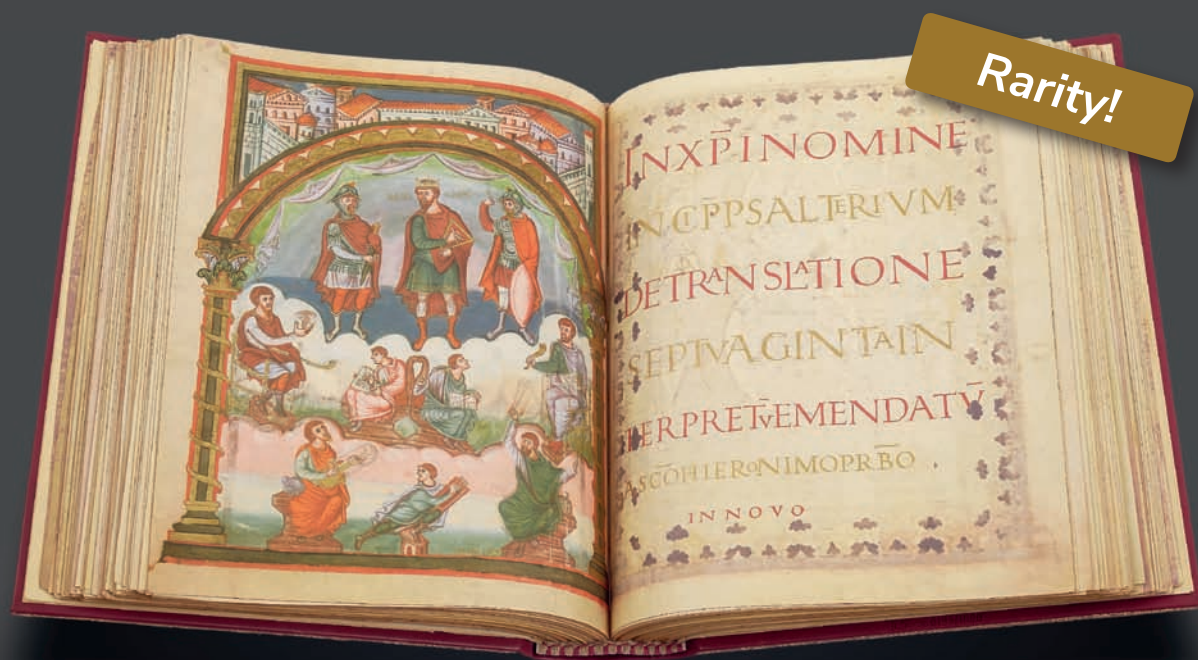 Rarity!
INXP̄INOMINE
INCP̄PSALTERIVM
DETRANSLATIONE
SEPTVAGINTAIN
TERPRETVEMENDATV̄
ASCŌHIERONIMOPRB̄O.
INNOVO